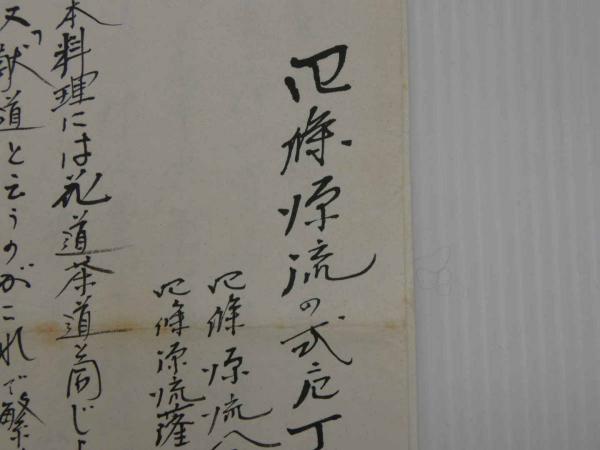 四條源流の式庖丁
四條源流八
四條源流薩
本料理には花道茶道と同じよ
又「献道と云うのがこれで繁